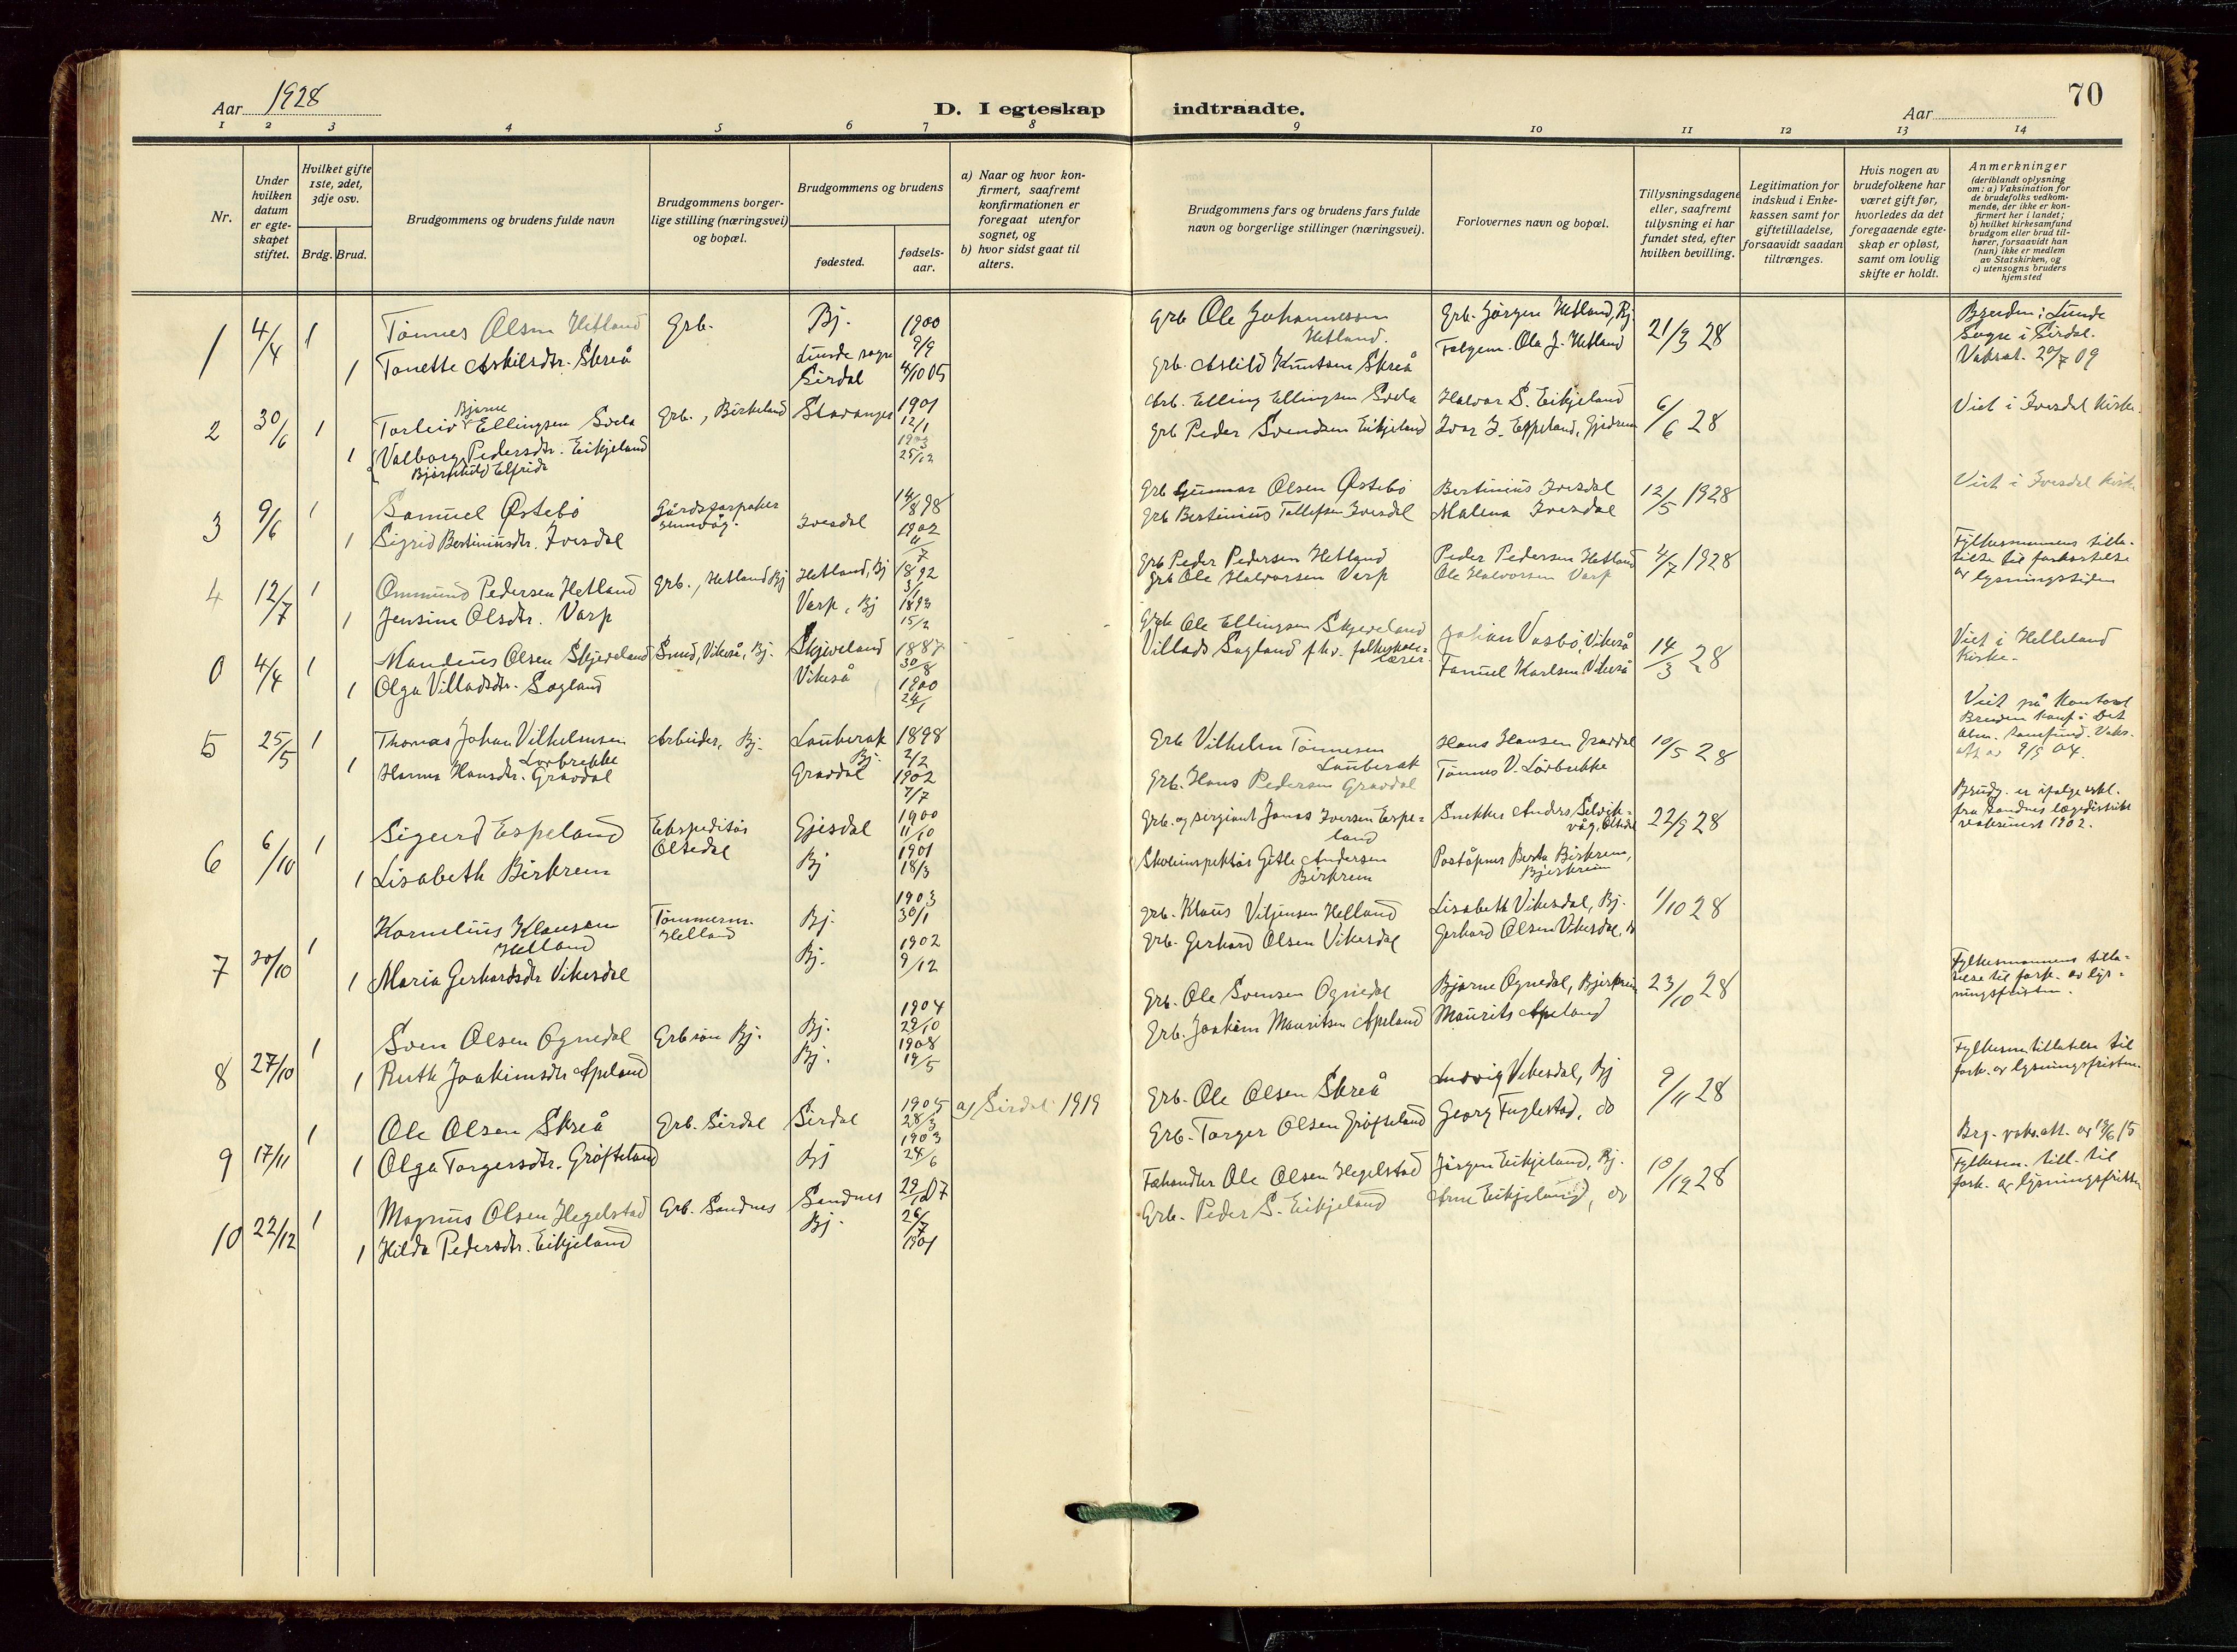 Aar 1928
D. I egteskap indtraadte.
Aar
70
1 2 3 4 5 6 7 8 9 10 11 12 13 14
Nr.
Under hvilken datum er egte-skapet stiftet.
Hvilket gifte 1ste, 2det, 3dje osv.
Brdg. Brud.
Brudgommens og brudens fulde navn
Brudgommens borger-lige stilling (næringsvei) og bopæl.
Brudgommens og brudens
fødested.
fødsels-aar.
a) Naar og hvor kon-firmert, saafremt konfirmationen er foregaat utenfor sognet, og
b) hvor sidst gaat til alters.
Brudgommens fars og brudens fars fulde navn og borgerlige stillinger (næringsvei).
Forlovernes navn og bopæl.
Tillysningsdagene eller, saafremt tillysning ei har fundet sted, efter hvilken bevilling.
Legitimation for indskud i Enke-kassen samt for giftetilladelse, forsaavidt saadan tiltrænges.
Hvis nogen av brudefolkene har været gift før, hvorledes da det foregaaende egte-skap er opløst, samt om lovlig skifte er holdt.
Anmerkninger (deriblandt oplysning om: a) Vaksination for de brudefolks vedkom-mende, der ikke er kon-firmert her i landet; b) hvilket kirkesamfund brudgom eller brud til-hører, forsaavidt han (hun) ikke er medlem av Statskirken, og c) utensogns bruders hjemsted
1 4/4 1 Tønnes Olsen Hetland Grb. Bj. 1900 9/9 Grb Ole Johannessen Hetland. Grb. Jørgen Hetland, Bj. 21/3 28 Bruden: Lunde
1 Tonette Askilsdtr. Skreå Lunde sogn Sirdal 4/10 05 Grb. Askild Knutsen Skreå Ola J. Hetland Sogn i Sirdal.
Vaksat. 20/7 09
2 30/6 1 Torleiv Bjarne Ellingsen Svela Grb., Birkeland Stavanger 1901 12/1 Arb. Elling Ellingsen Svela Halvar S. Eikjeland 6/6 28 Viet i Ivesdal Kirke.
1 Valborg Pedersdtr. Eikjeland 25/12 Grb Peder Svendsen Eikjeland Ivar I. Espeland, Gjedrem
Bjørnhild Elfrida
3 9/6 1 Samuel Østebø Gårdsforpakter 14/8 98 Grb Gunnar Olsen Østebø Bertinius Ivesdal 12/5 1928 Viet i Ivesdal Kirke
1 Sigrid Bertiniusdtr. Ivesdal Ivesdal 1902 4/7 Grb Bertinius Tollefsen Ivesdal Malena Ivesdal
4 12/7 1 Ommund Pedersen Hetland Grb., Hetland Bj Hetland, Bj 1892 3/1 Grb Peder Pedersen Hetland Peder Pedersen Hetland 4/7 1928 Fylkesmannens tilla-telse til forkortelse av lysningstiden
1 Jensine Olsdtr. Varp Varp, Bj 1893 15/2 Grb Ole Halvorsen Varp Ole Halvorsen Varp
0 4/4 1 Mandius Olsen Skjeveland Smed, Vikeså, Bj. Skjeveland 1887 30/8 Grb Ole Ellingsen Skjeveland Johan Vasbø, Vikeså 14/3 28 Viet i Helleland Kirke.
1 Olga Villadsdtr. Sagland Vikeså 1900 24/1 Villads Sagland fhv. folkeskole-lærer. Karlsen Vikeså
5 25/5 1 Thomas Johan Vilhelmsen Lørbrekke Arbeider, Bj. Lauberak Bj. 1898 2/2 Grb Vilhelm Tønnesen Lauberak Hans Hansen Gravdal 10/5 28 Viet på Kontoret
1 Hanna Hansdtr. Gravdal Gravdal 1902 7/7 Grb. Hans Pedersen Gravdal Tønnes V. Lørbrekke
6 6/10 1 Sigurd Espeland Ekspeditør Oltedal Gjesdal 1900 11/10 Grb. og sergiant Jonas Iversen Espe-land Snekker Anders Selvik-våg, Oltedal 22/9 28 Brudg. er ifølge erkl. fra Sandnes lægedistrikt 1902.
1 Lisabeth Birkrem Bj 1901 18/3 Skoleinspektør Gitle Andersen Birkrem Poståpner Berta Birkrem, Bjerkreim
7 20/10 1 Kornelius Klausen Helland Tømmerm. Helland Bj. 1903 30/1 Grb. Klaus Viljensen Helland Lisabeth Vikesdal, Bj. 1/10 28
1 Maria Gerhardsdtr Vikesdal Bj. 1902 9/12 Grb. Gerhard Olsen Vikesdal Gerhard Olsen Vikesdal, do
8 27/10 1 Sven Olsen Ognedal Grbsøn Bj. Bj. 1904 29/10 Grb. Ole Svensen Ognedal Bjarne Ognedal, Bjerkreim 23/10 28 Fylkesmannens tilla-telse til fork. av lys-ningsfristen.
1 Ruth Joakimsdtr Apeland Bj. 1908 19/5 Grb. Joakim Mauritsen Apeland Maurits Apeland
9 17/11 1 Ole Olsen Skreå Grb. Sirdal Sirdal 1905 28/3 a) Sirdal 1919 Grb. Ole Olsen Skreå Ludvig Vikesdal, Bj 9/11 28 Fylkesm tillatelse til fork. av lysningsfristen.
1 Olga Torgersdtr. Grøfteland Bj 1903 24/6 Grb. Torger Olsen Grøfteland Georg Fuglestad, do
10 22/12 1 Magnus Olsen Hegelstad Grb. Sandnes Sandnes 29/1 07 Fehandler Ole Olsen Hegelstad Jørgen Eikjeland, Bj. 10/12 28 Brg. vaks.att. av 19/6 15
1 Hilda Pedersdtr. Eikjeland Bj. 26/7 1901 Grb. Peder S. Eikjeland Arne Eikjeland, do Fylkesm. till. til fork. av lysningsfristen